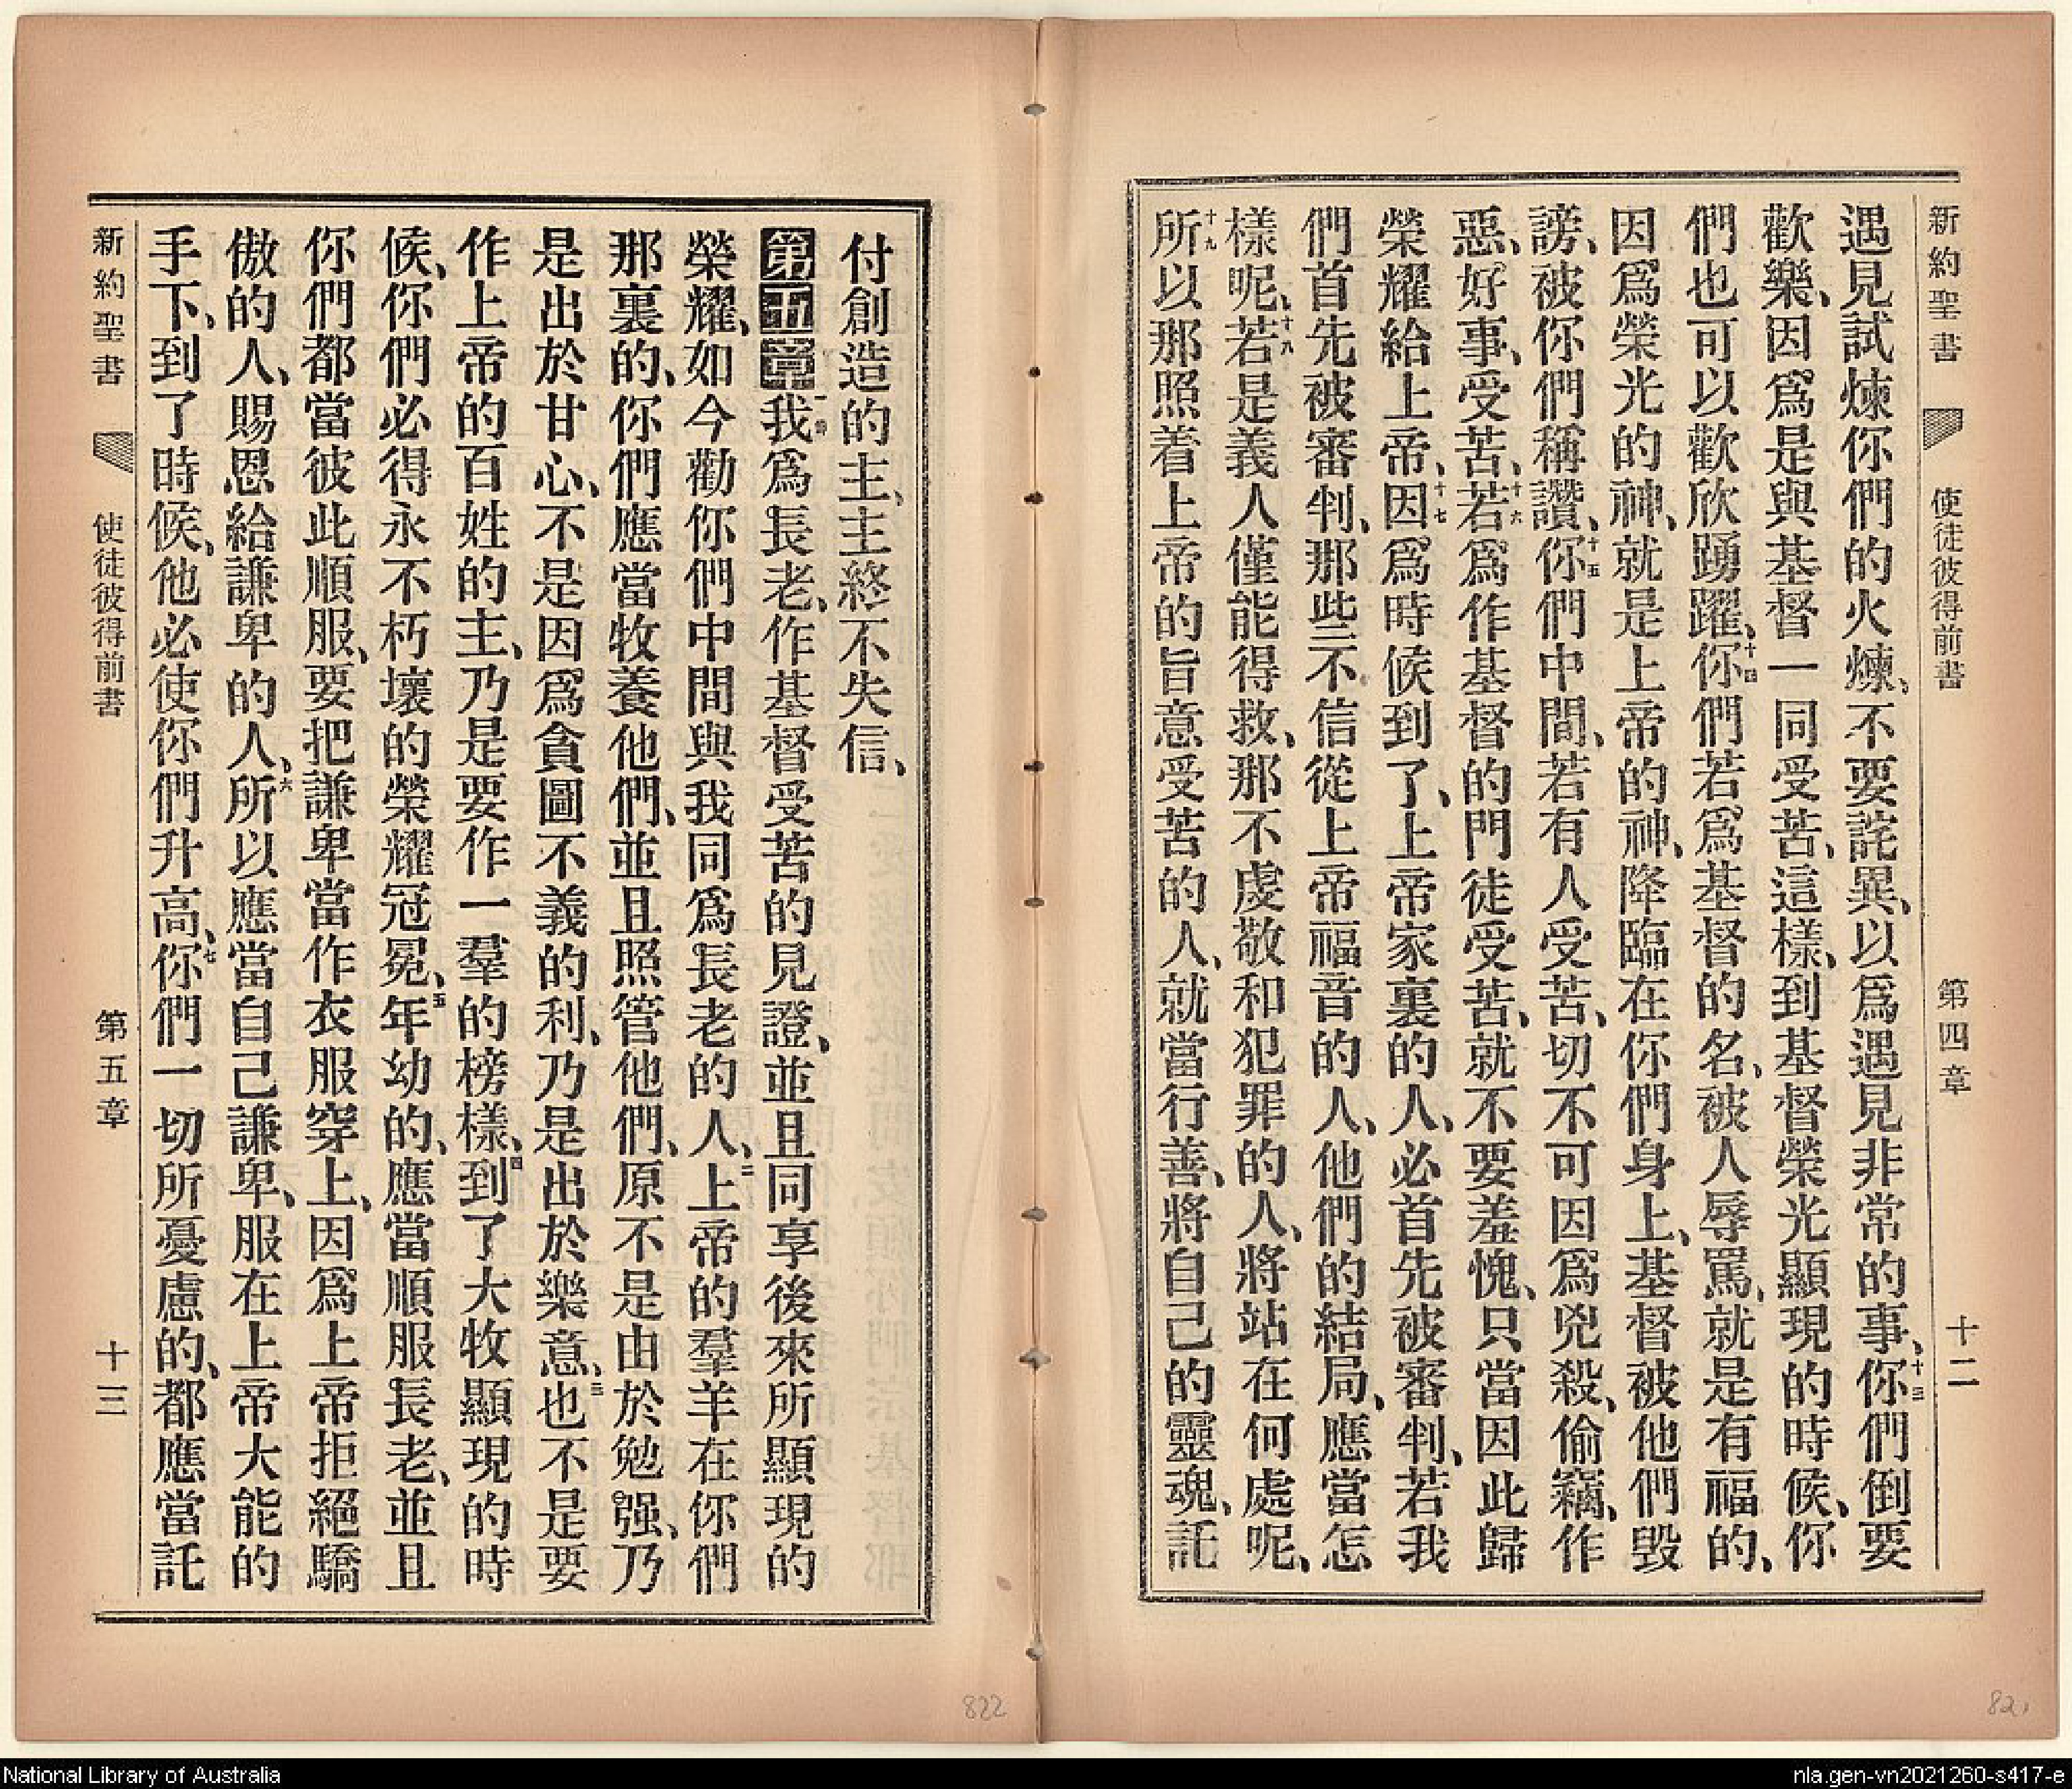 新約聖書 使徒彼得前書 第四章 十二
遇見試煉你們的火煉、不要詫異、以爲遇見非常的事、十三你們倒要
歡樂、因爲是與基督一同受苦、這樣、到基督榮光顯現的時候、你
們也可以歡欣踴躍、十四你們若爲基督的名、被人辱罵、就是有福的、
因爲榮光的神、就是上帝的神、降臨在你們身上、基督被他們毀
謗、被你們稱讚、十五你們中間、若有人受苦、切不可因爲兇殺、偷竊、作
惡、好事、受苦、十六若爲作基督的門徒受苦、就不要羞愧、只當因此歸
榮耀給上帝、十七因爲時候到了、上帝家裏的人、必首先被審判、若我
們首先被審判、那些不信從上帝福音的人、他們的結局、應當怎
樣呢、十八若是義人僅能得救、那不虔敬和犯罪的人、將站在何處呢、
十九所以那照着上帝的旨意受苦的人、就當行善、將自己的靈魂、託
付創造的主、主終不失信、
第五章一節我爲長老、作基督受苦的見證、並且同享後來所顯現的
榮耀、如今勸你們中間與我同爲長老的人、二上帝的羣羊在你們
那裏的、你們應當牧養他們、並且照管他們、原不是由於勉强、乃
是出於甘心、不是因爲貪圖不義的利、乃是出於樂意、三也不是要
作上帝的百姓的主、乃是要作一羣的榜樣、四到了大牧顯現的時
候、你們必得永不朽壞的榮耀冠冕、五年幼的、應當順服長老、並且
你們都當彼此順服、要把謙卑當作衣服穿上、因爲上帝拒絕驕
傲的人、賜恩給謙卑的人、六所以應當自己謙卑、服在上帝大能的
手下、到了時候、他必使你們升高、七你們一切所憂慮的、都應當託
新約聖書 使徒彼得前書 第五章 十三
822
821
National Library of Australia
nla.gen-vn2021260-s417-e